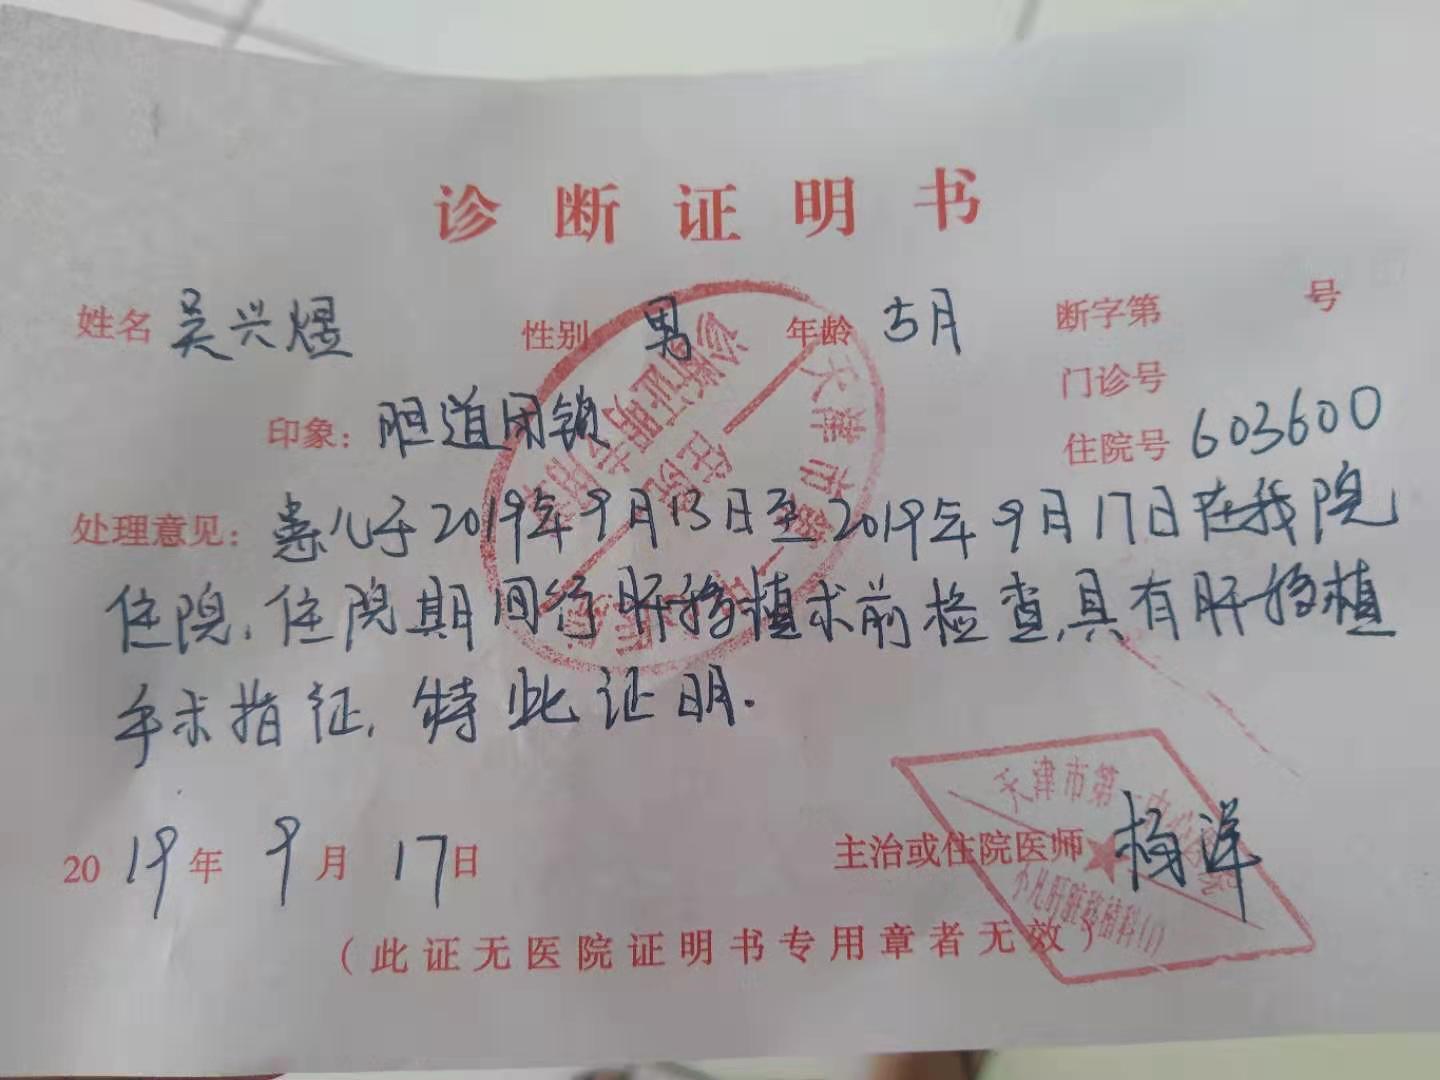 诊断证明书
姓名 吴兴煜 性别 男 年龄 5月 断字第 号
门诊号
印象：胆道闭锁 住院号 603600
处理意见：患儿于2019年9月13日至2019年9月17日在我院
住院，住院期间行肝移植术前检查，具有肝移植
手术指征，特此证明.
2019年9月17日 主治或住院医师 杨洋
（此证无医院证明书专用章者无效）
天津市第一中心医院
住院
诊断证明专用章
天津市第一中心医院
小儿肝脏移植科(1)